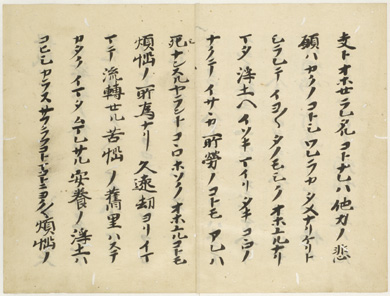 夫トオホセラレタルコトナレハ他力ノ悲
願ハカクノコトシワレラカタメナリケリト
シラレテイヨ〱タノモシクオホユルナリ
マタ浄土ヘイソキマイリタキコヽロノ
ナクテイサヽカ所勞ノコトモアレハ
死ナンスルヤラントコヽロホソクオホユルコトモ
煩惱ノ所爲ナリ久遠劫ヨリイマ
マテ流轉セル苦惱ノ舊里ハステ
カタクイマタムマレサル安養ノ浄土ハ
コヒシカラスサフラフコトマコトニヨク〱煩惱ノ